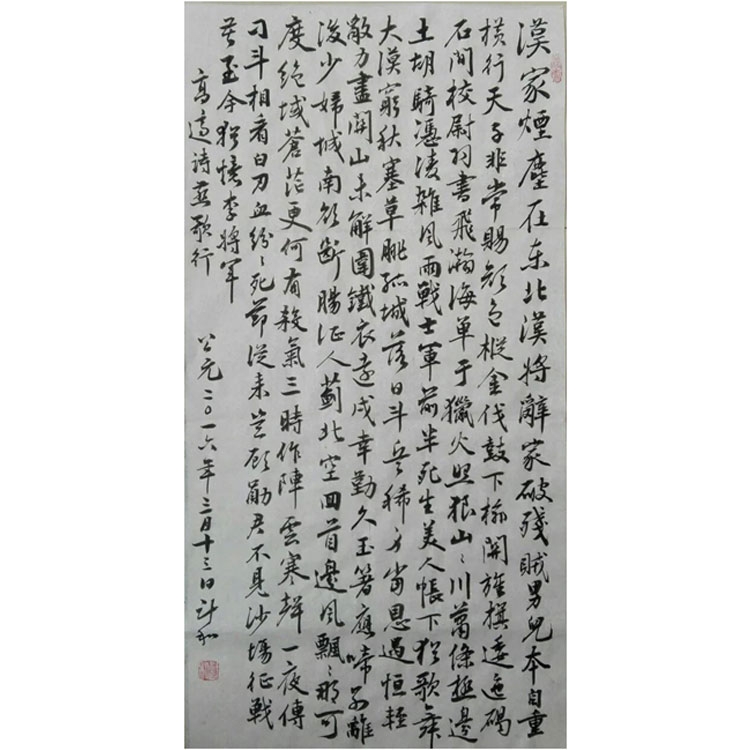 漢家煙塵在东北漢將辭家破殘賊男兒本自重
橫行天子非常賜顔色摐金伐鼓下榆関旌旗逶迤碣
石間校尉羽書飛瀚海單于獵火照狼山山川蕭條極邊
土胡騎憑淩雜風雨戰士軍前半死生美人帳下猶歌舞
大漠窮秋塞草腓孤城落日斗兵稀身當恩遇恒輕
敵力盡関山未解圍鐵衣遠戍辛勤久玉箸應啼别離
後少婦城南欲斷腸征人薊北空回首邊風飄飄那可
度絕域蒼茫更何有殺氣三時作陣雲寒聲一夜傳
刁斗相看白刃血紛紛死节從来豈顧勛君不見沙場征戰
苦至今猶憶李將軍
高適詩燕歌行
公元二〇一六年三月十三日